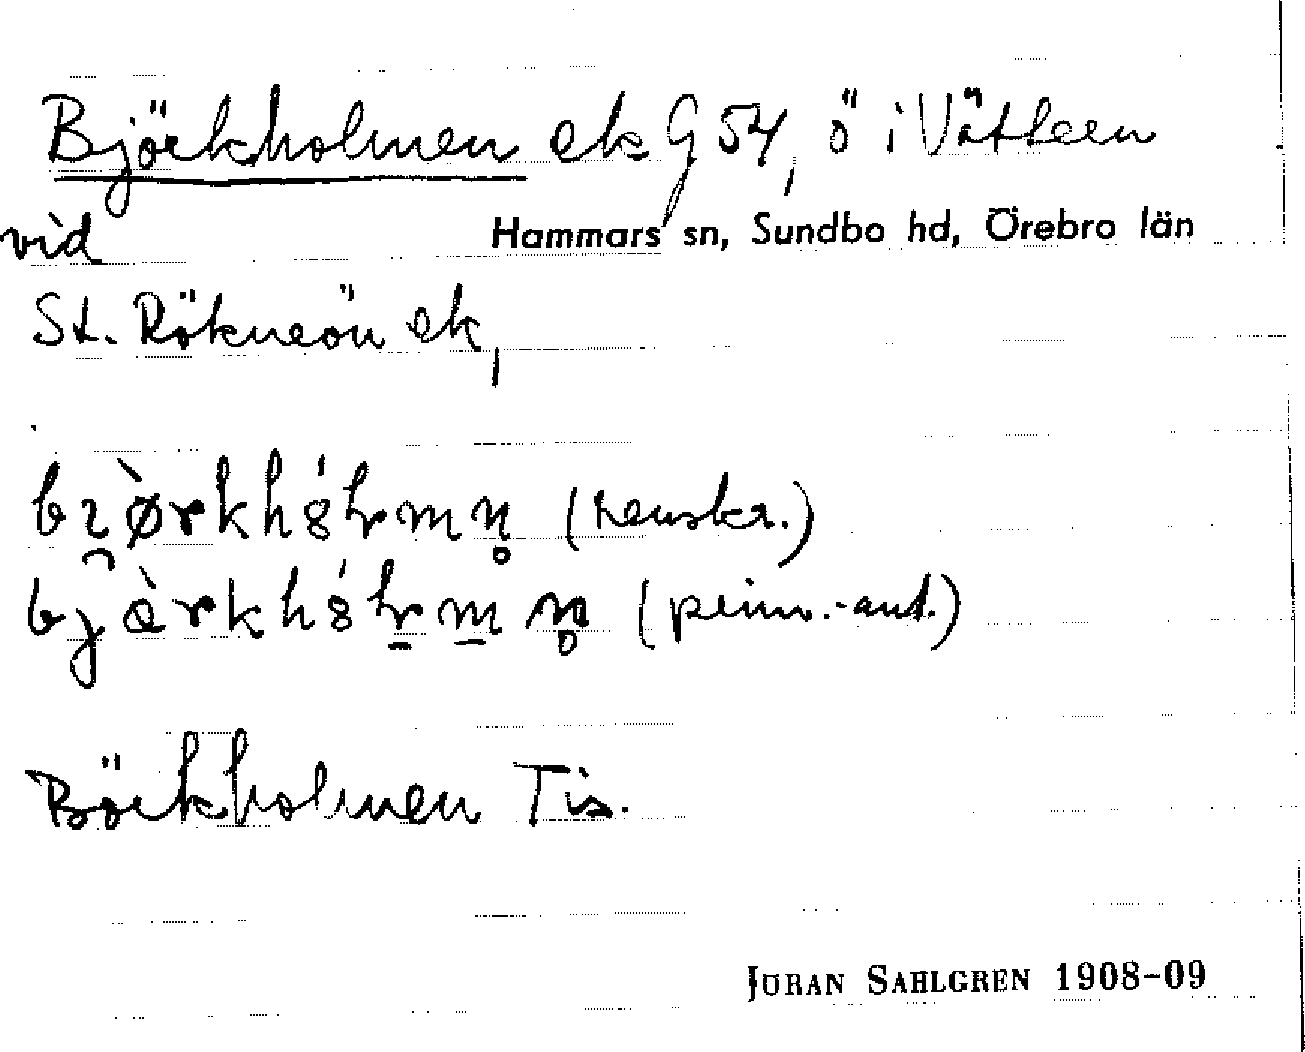 Björkholmen ek G 54, ö i Vättern
vid
Hammars sn, Sundbo hd, Örebro län
St. Rökneön ek,
(renskr.)
(prim.-ant.)
Börkholmen Tis.
JÖRAN SAHLGREN 1908-09